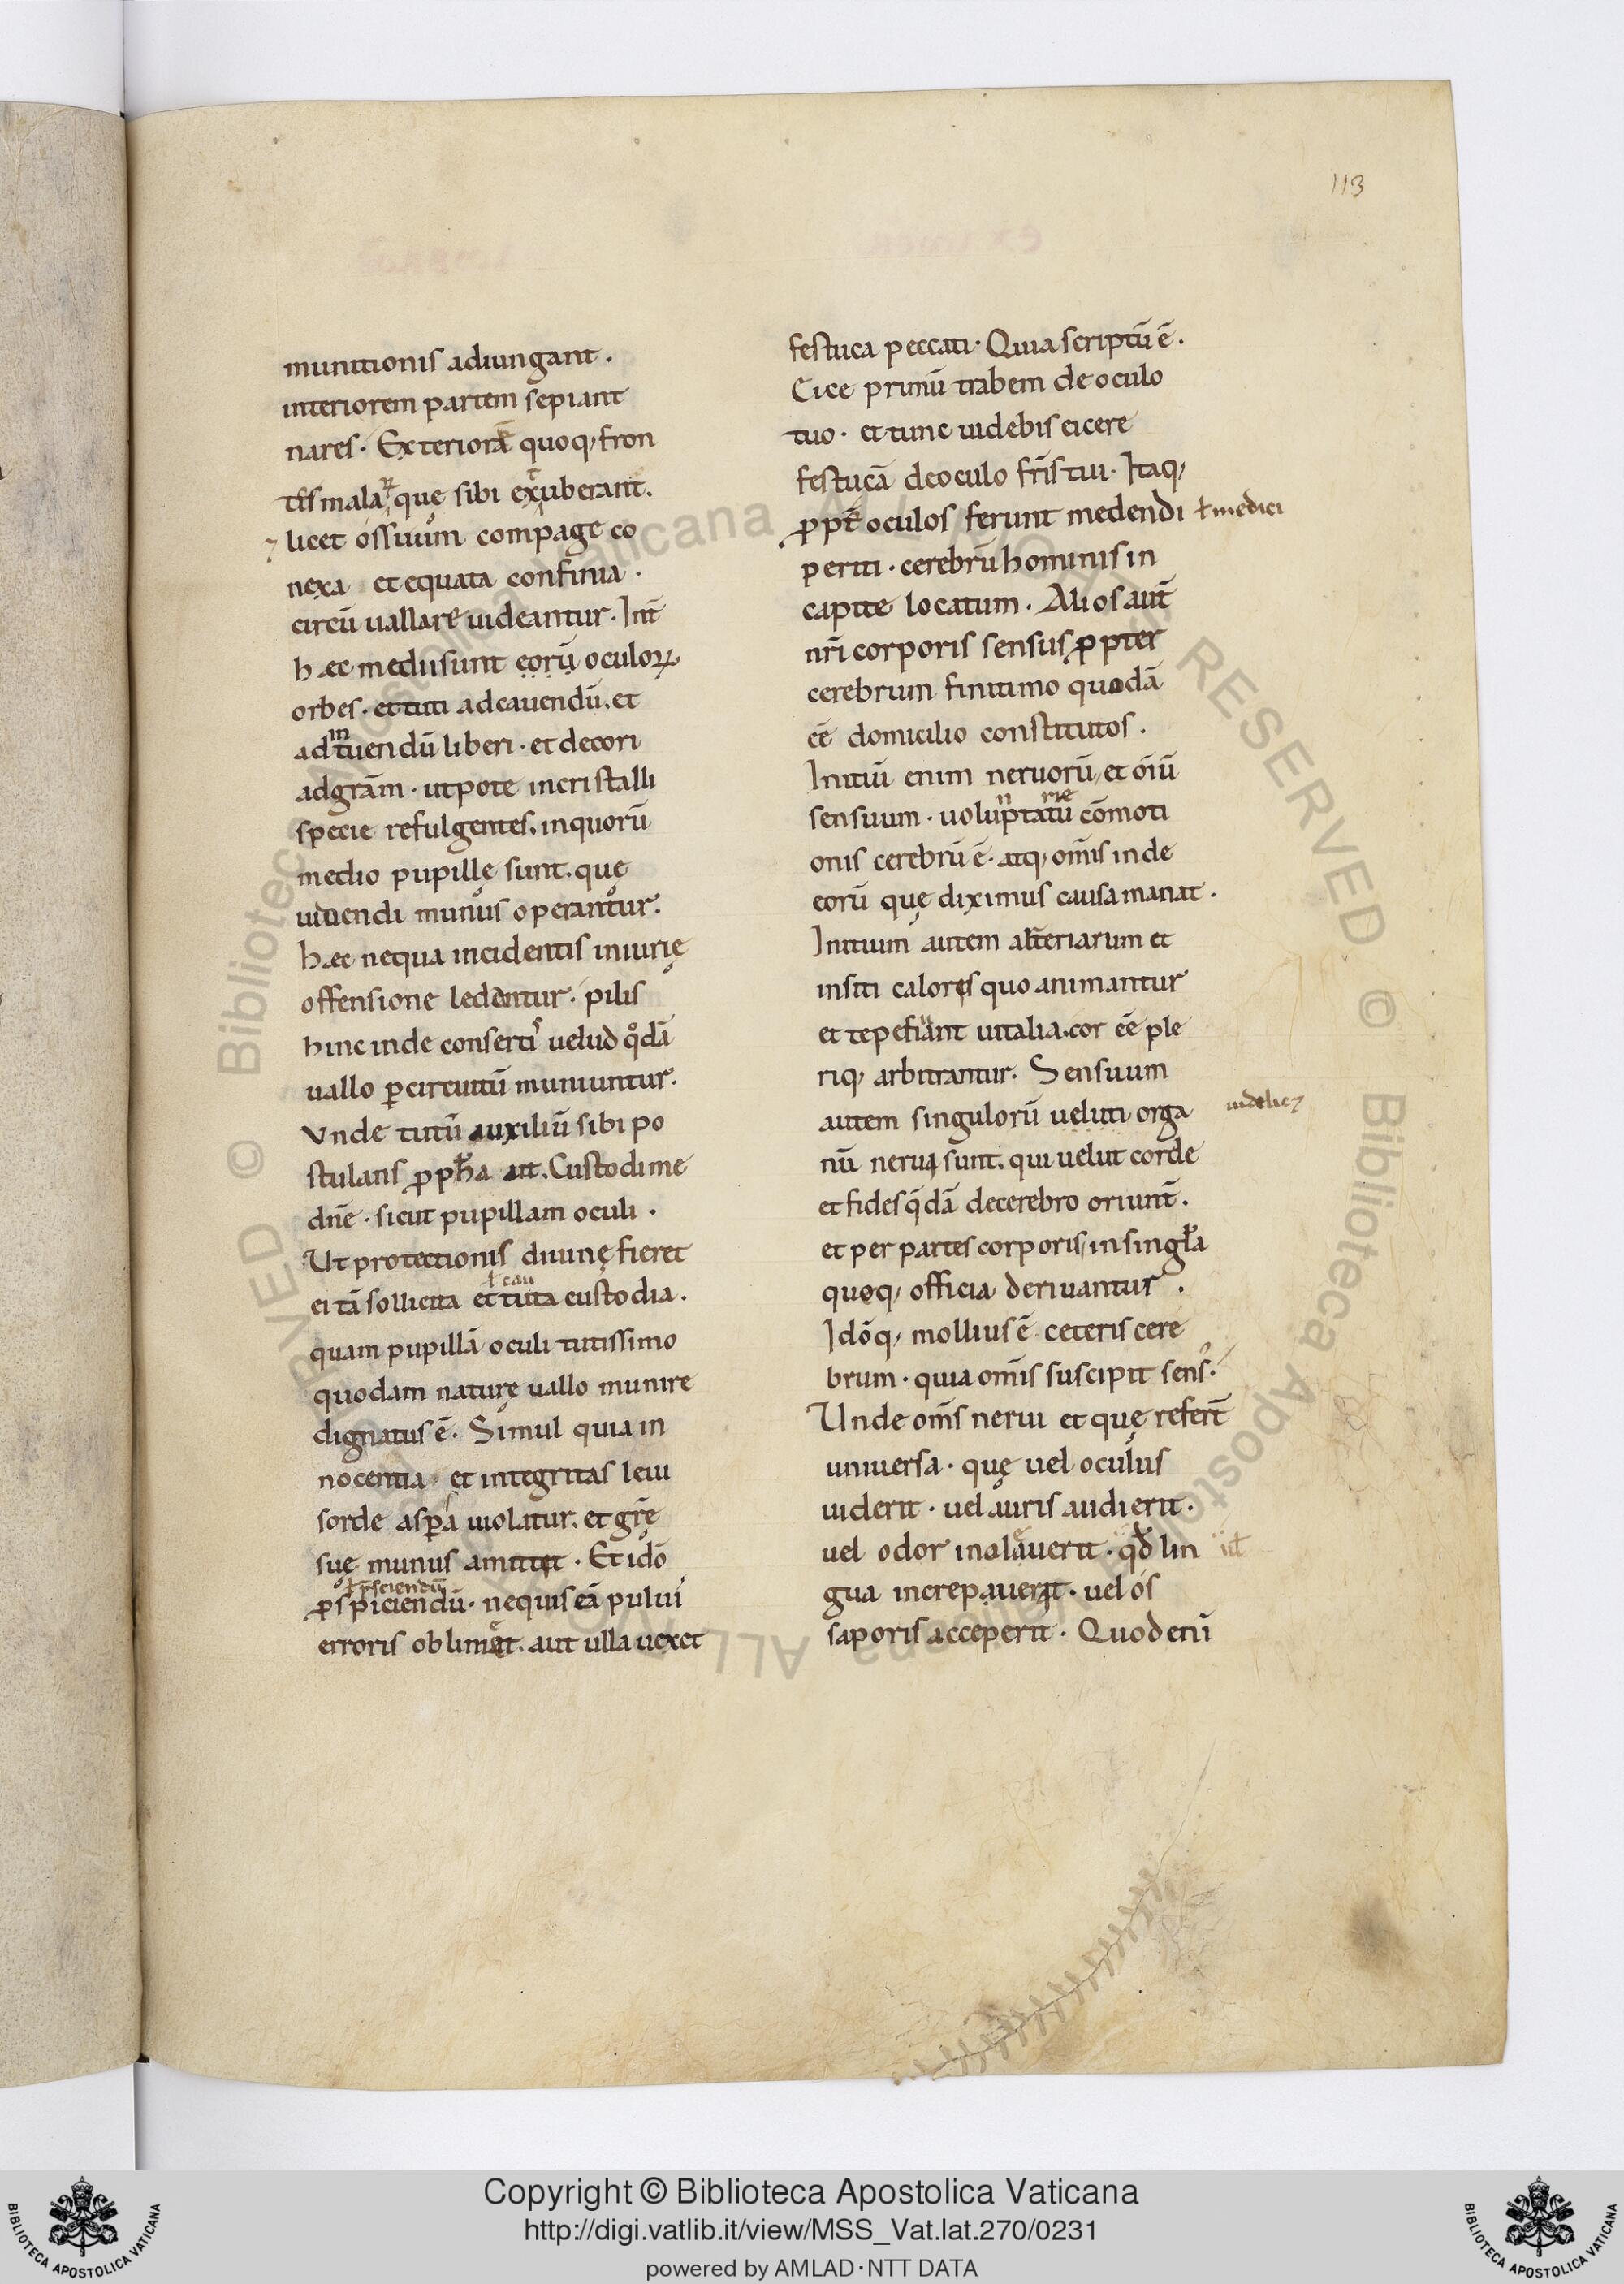 113
munitionis adiungant.
interiorem partem sepiant
nares. Exteriorē quoq, fron
tis malaꝝ que sibi exuberant.
licet ossiuum compage co
nexa et equata confinia.
circū uallare uideantur. Int̄
hæc medii sunt eorū oculoꝝ
orbes. et tuti ad cauendū. et
ad intuendū liberi. et decori
ad grām. utpote in cristalli
specie refulgentes. in quorū
medio pupille sunt. quę
uidendi munus operantur.
hæc nequa incidentis iniurię
offensione ledentur. pilis
hinc inde consertis uelud qdā
uallo p circuitū muniuntur.
Vnde tutū auxiliū sibi po
stulans ꝓpħa ait. Custodi me
dn̄e. sicut pupillam oculi.
Ut protectionis diuinę fieret
ei tā sollicita et tuta custodia.
ł cau
quam pupillā oculi tutissimo
quodam naturę uallo munire
dignatus ē. Simul quia in
nocentia et integritas leui
sorde aspsa uiolatur. et grē
suę munus amittit. Et idō
ł p̄sciendū
ꝓspiciendū. nequis eā puluis
erroris oblimet. aut ulla uexet
festuca peccati. Quia scriptū ē.
Eice primū trabem de oculo
tuo. et tunc uidebis eicere
festucā de oculo fr̄is tui. Itaq,
ꝓpt̄ oculos ferunt medendi ł medici
periti. cerebrū hominis in
capite locatum. Alios aut̄
nr̄i corporis sensus ꝓpter
cerebrum finitimo quodā
eē domicilio constitutos.
Initiū enim neruorū, et oīū
sensuum. uoluptatū cōmoti
n rie
onis cerebrū ē. atq, om̄is inde
eorū quę diximus causa manat.
Initium autem arteriarum et
insiti caloris quo animantur
et tepefiant uitalia. cor eē ple
riq, arbitrantur. Sensuum
autem singulorū ueluti orga
nū nerui sunt. qui uelut corde
et fides qdā de cerebro oriunt̄.
et per partes corporis, in singła
quęq, officia deriuantur.
Idōq, mollius ē ceteris cere
brum. quia om̄is suscipit sens.
Unde om̄s nerui et quę refert̄
uniuersa. quę uel oculus
uiderit. uel auris audierit.
uel odor inalauerit. qđ lin uł
gua increpauerit. uel os
saporis acceperit. Quod enī
Copyright © Biblioteca Apostolica Vaticana
http://digi.vatlib.it/view/MSS_Vat.lat.270/0231
powered by AMLAD·NTT DATA
BIBLIOTECA APOSTOLICA VATICANA
BIBLIOTECA APOSTOLICA VATICANA